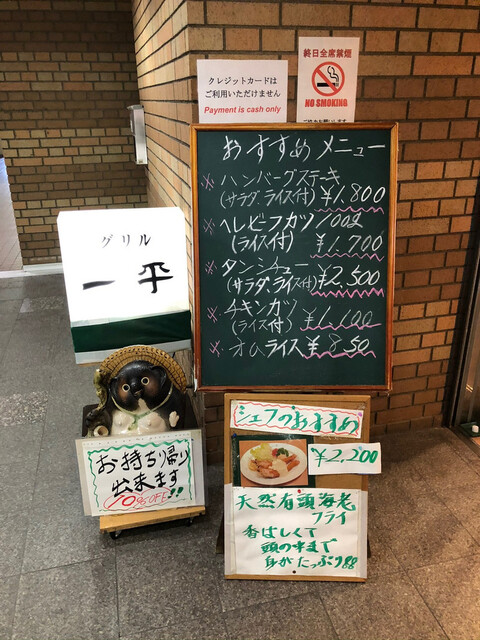 クレジットカードは
ご利用いただけません
Payment is cash only
終日全席禁煙
NO SMOKING
おすすめメニュー
※ハンバーグステーキ
(サラダ、ライス付) ¥1,800
※ヘレビーフカツ100g
(ライス付) ¥1,700
※タンシチュー
(サラダ、ライス付) ¥2,500
※チキンカツ
(ライス付) ¥1,100
※オムライス ¥850
グリル
一平
お持ち帰り
出来ます
10%OFF!!
シェフのおすすめ
¥2,200
天然有頭海老
フライ
香ばしくて
頭の中まで
身がたっぷり